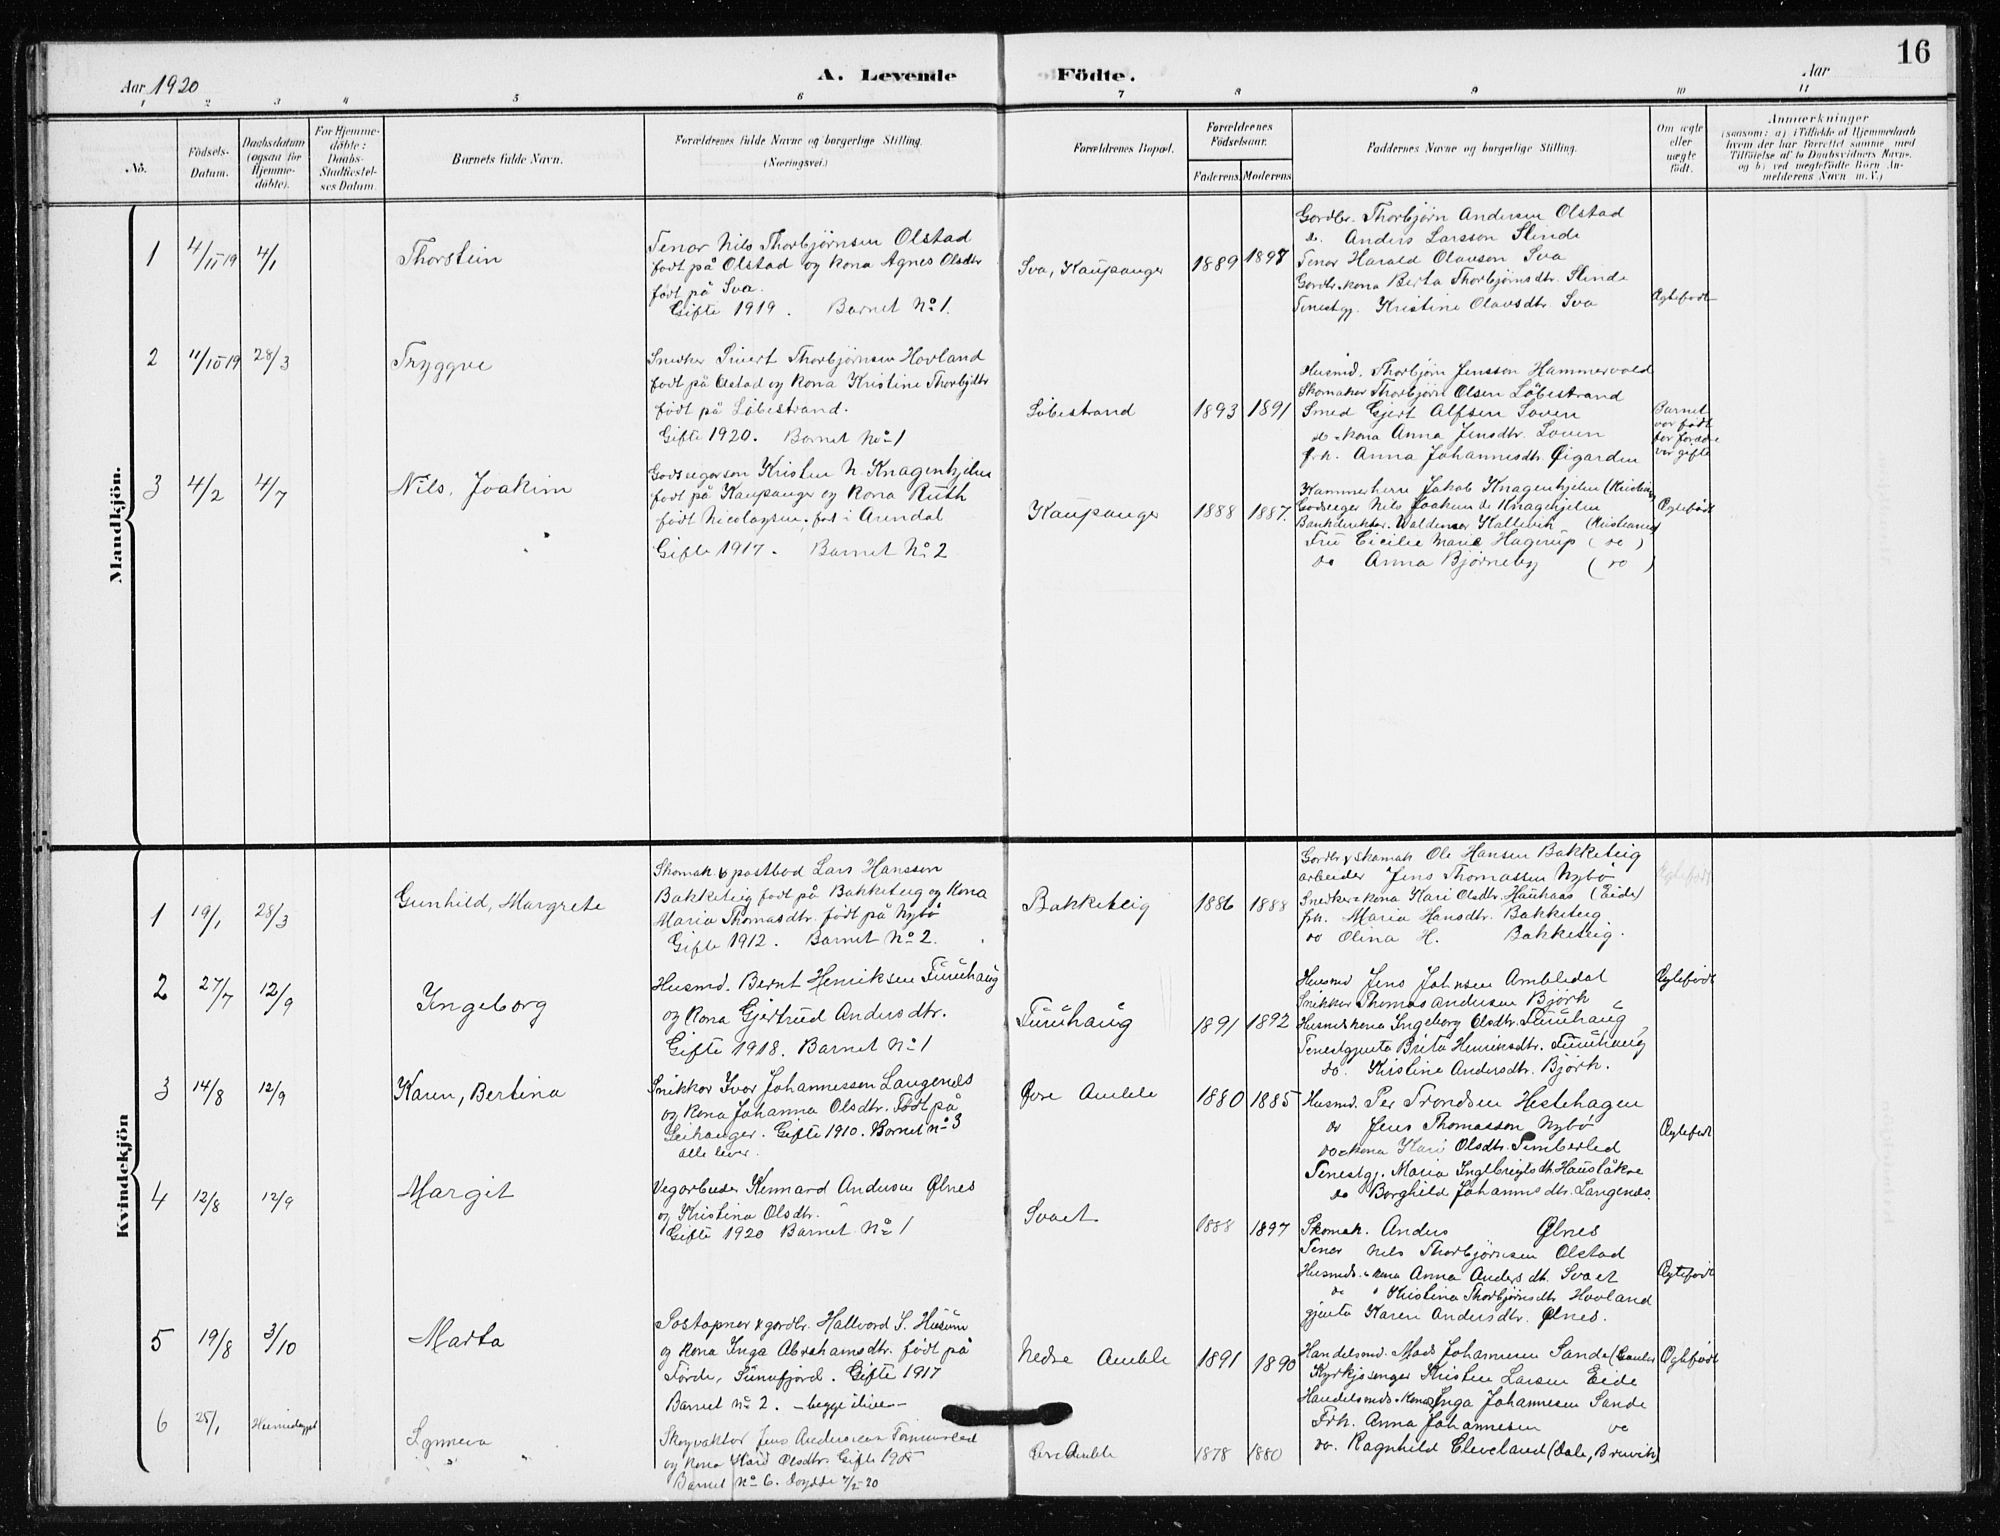 16
Aar 1920
A. Levende
Födte.
Aar
1 2 3 4 5 6 7 8 9 10 11
No.
Födsels-
Datum.
Daabsdatum
(ogsaa for
Hjemme-
döbte).
For Hjemme-
döbte:
Daabs-
Stadfæstel-
ses Datum
Barnets fulde Navn.
Forældrenes fulde Navne og borgerlige Stilling.
(Næringsvei.)
Forældrenes Bopæl.
Forældrenes
Födselsaar.
Faderens. Moderens
Faddernes Navne og borgerlige Stilling.
Om ægte
eller
uægte
födt.
Anmærkninger
(saasom: a) i Tilfælde af Hjemmedaab
hvem der har forrettet samme med
Tilföielse af to Daabsvidners Navne.
og b) ved uægtefödte Börn An-
melderens Navn m. V.)
Mandkjön.
1 4/11-19 4/1 Thorstein
Tenar Nils Thorbjørnsen Olstad
født på Olstad og kona Agnes Olsdtr
født på Sva.
Gifte 1919. Barnet No 1.
Sva, Kaupanger 1889 1897
Gardbr. Thorbjørn Andersen Olstad
do. Anders Larsson Slinde
Tenar Harald Olavson Sva
Gardbr.kona Berta Thorbjørnsdtr. Slinde
Tenestgj. Kristine Olavsdtr. Sva
Ægtefødt
2 11/10-19 28/3 Tryggve
Snedker Sivert Thorbjørnsen Hovland
født på Olstad og kona Kristine Thorbjdtr
født på Løbestrand.
Gifte 1920. Barnet No 1
Løbestrand 1893 1891
Husmd. Thorbjørn Jensson Hammervold
Skomaker Thorbjørn Olsen Løbestrand
Smed Gjert Alfsen Loven
do - kona Anna Jensdtr. Loven
frk. Anna Johannesdtr. Øigarden
Barnet
var født
før foræld
var gifte
3 4/2 4/7 Nils, Joakim
Godseigarson Kristen N. Knagenhjelm
født på Kaupanger og kona Ruth
født Nicolaysen, fød i Arendal
Gifte 1917. Barnet No 2
Kaupanger 1888 1887.
Kammerherre Jakob Knagenhjelm (Kristiania
Godseiger Nils Joakim de Knagenhjelm
Bankdirektør. Waldemar Kallevik (Kristiania)
Frú Cicilie Marie Hagerup (do)
do Anna Bjørneby (do)
Ægtefødt
Kvindekjön
1 19/1 28/3 Gunhild, Margrete
Skomak. & postbod Lars Hansson
Bakketeig født på Bakketeig og kona
Maria Thomasdtr. født på Nybø
Gifte 1912. Barnet No 2.
Bakketeig 1886 1888
Gardbr & skomak Ole Hansen Bakketeig
arbeider Jens Thomassen Nybø
Snedker - kona Kari Olsdtr. Hauhaas (Eide)
frk. Maria Hansdtr. Bakketeig
do Olina H. Bakketeig.
Ægtefødt
2 27/7 12/9 Ingeborg
Husmd. Bernt Henriksen Furuhaug
og kona Gjertrud Andersdtr.
Gifte 1918. Barnet No 1
Furuhaug 1891 1892
Husmd Jens Johnsen Ambledal
Snikkar Thomas Andersen Björk
Husmdskona Ingeborg Olsdtr. Furuhaug
Tenestgjenta Brita Henriksdtr. Furuhaug
do. Kristine Andersdtr. Björk.
Ægtefødt
3 14/8 12/9 Karen, Bertina
Snikkar Ivar Johannessen Langenes
og kona Johanna Olsdtr. Født på
Leikanger. Gifte 1910. Barnet No 3
alle lever.
Øvre Amble 1880 1885
Husmd. Per Trondsen Hestehagen
do Jens Thomasson Nybø
do - kona Kari Olsdtr. Timberlid
Tenestgj. Maria Ingebrigtsdtr. Hauslåkre
do Borghild Johannisdtr. Langenes.
Ægtefødt
4 12/8 12/9 Margit
Vegarbeider Kennard Andersen Ølnes
og Kristina Olsdtr.
Gifte 1920 Barnet No 1
Svaet 1888 1897
Skomak. Anders Ølnes
Tenar Nils Thorbjørnsen Olstad
Husmds - kona Anna Andersdtr. Svaet
do Kristina Thorbjørnsdtr Hovland
gjenta Karen Andersdtr. Ølnes.
Ægtefødt
5 19/8 3/10 Marta
Postopnar & gardbr. Hallvard S. Husum
og kona Inga Abrahamsdtr. født på
Førde, Sunnfjord. Gifte 1917
Barnet No 2. - begge ilive -
Nedre Amble 1891 1890
Handelsmd. Mads Johannesen Sande (Gaular
Kyrkjesongar Kristen Larsen Eide
Handelsmds - kona Inga Johannesen Sande
Frk. Anna Johannesen do
do. Ragnhild Cleveland (Dale, Bruvik)
Ægtefødt
6 25/1 Heimedøypt Synneva
Skogvaktar Jens Andersson
og kona Kari Olsdtr. Gifte
Barnet No 6. Døydde 7/2-20
Øvre Amble 1878 1880